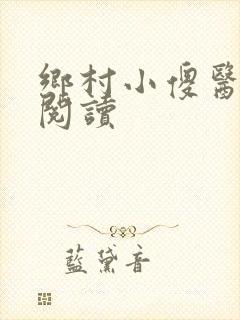 鄉村小傻醫
閱讀
藍黛音